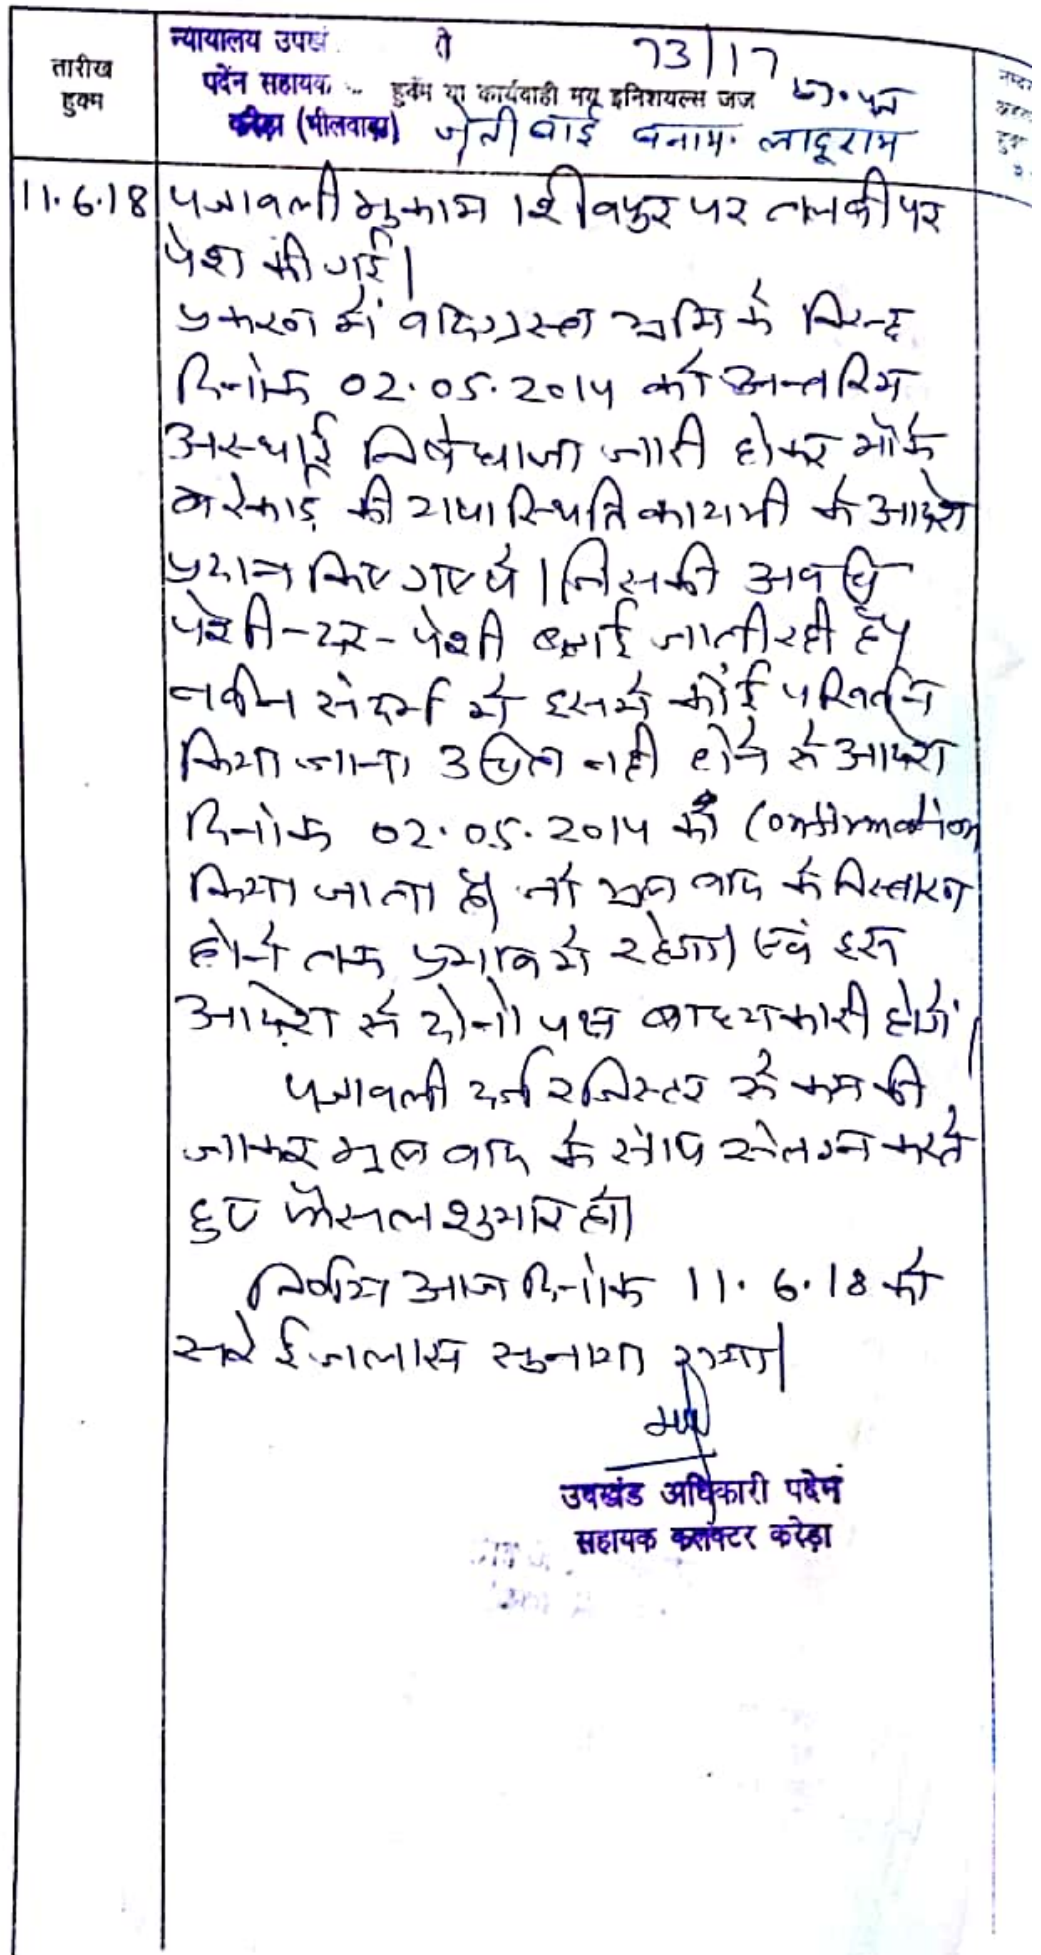 तारीख
हुक्म
न्यायालय उपखं
73/17
पदेन सहायक
हुक्म या कार्यवाही मय इनिशयल्स जज
करेड़ा (भीलवाड़ा)
जेती बाई बनाम. लादूराम
11.6.18 पत्रावली मुकाम शिवपुर पर तलबी पर
पेश की गई।
प्रकरण में वादग्रस्त भूमि के विरूद्ध
दिनांक 02.05.2014 को अन्तरिम
अस्थाई निषेधाज्ञा जारी होकर मौके
व रेकार्ड की यथास्थिति कायमी के आदेश
प्रदान किए गए थे। जिसकी अवधि
पेशी-दर-पेशी बढ़ाई जाती रही है।
नवीन संदर्भ में इसमें कोई परिवर्तन
किया जाना उचित नहीं होने से आदेश
दिनांक 02.05.2014 को Confirmation
किया जाता है। जो मूल वाद के निस्तारण
होने तक प्रभाव में रहेगा। एवं इस
आदेश से दोनो पक्ष बाध्यकारी होगें।
पत्रावली दर्ज रजिस्टर से कम की
जाकर मूल वाद के साथ संलग्न करते
हुए फैसल शुमार हो।
निर्णय आज दिनांक 11.6.18 को
सरे ईजलास सुनाया गया।
उपखंड अधिकारी पदेन
सहायक कलक्टर करेड़ा